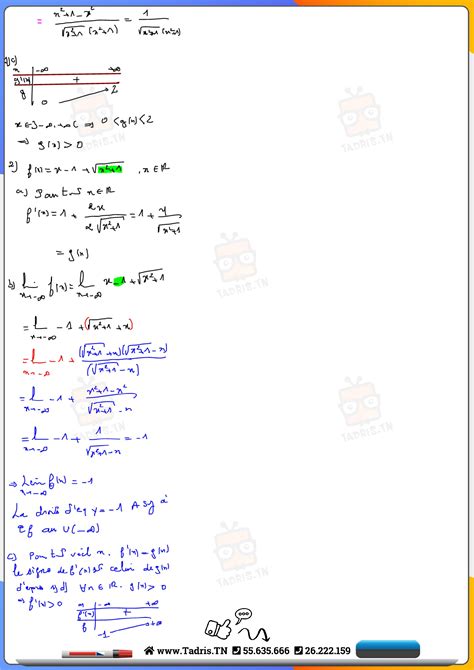 = (x²+1-x²)/(√(x²+1) (x²+1)) = 1/(√(x²+1) (x²+1))
x -∞ +∞
g'(x) +
g 0 2
x ∈ ]-∞,+∞[ ⇒ 0 < g(x) < 2
⇒ g(x) > 0
2) f(x) = x - 1 + √(x²+1) , x ∈ ℝ
a) Pour tout x ∈ ℝ
f'(x) = 1 + 2x/(2√(x²+1)) = 1 + x/√(x²+1)
= g(x)
b) lim x→-∞ f(x) = lim x→-∞ x - 1 + √(x²+1)
= lim x→-∞ -1 + (√(x²+1) + x)
= lim x→-∞ -1 + (√(x²+1) + x)(√(x²+1) - x)/(√(x²+1) - x)
= lim x→-∞ -1 + (x²+1-x²)/(√(x²+1) - x)
= lim x→-∞ -1 + 1/(√(x²+1) - x) = -1
⇒ lim x→-∞ f(x) = -1
La droite d'eq y = -1 Asy à
ℰf au V(-∞)
c) Pour tout réel x. f'(x) = g(x)
le signe de f'(x) est celui de g(x)
d'après 1)d) ∀x ∈ ℝ. g(x) > 0
⇒ f'(x) > 0
x -∞ +∞
f'(x) +
f -1 +∞
TADRIS.TN
TADRIS.TN
TADRIS.TN
TADRIS.TN
www.Tadris.TN 55.635.666 26.222.159